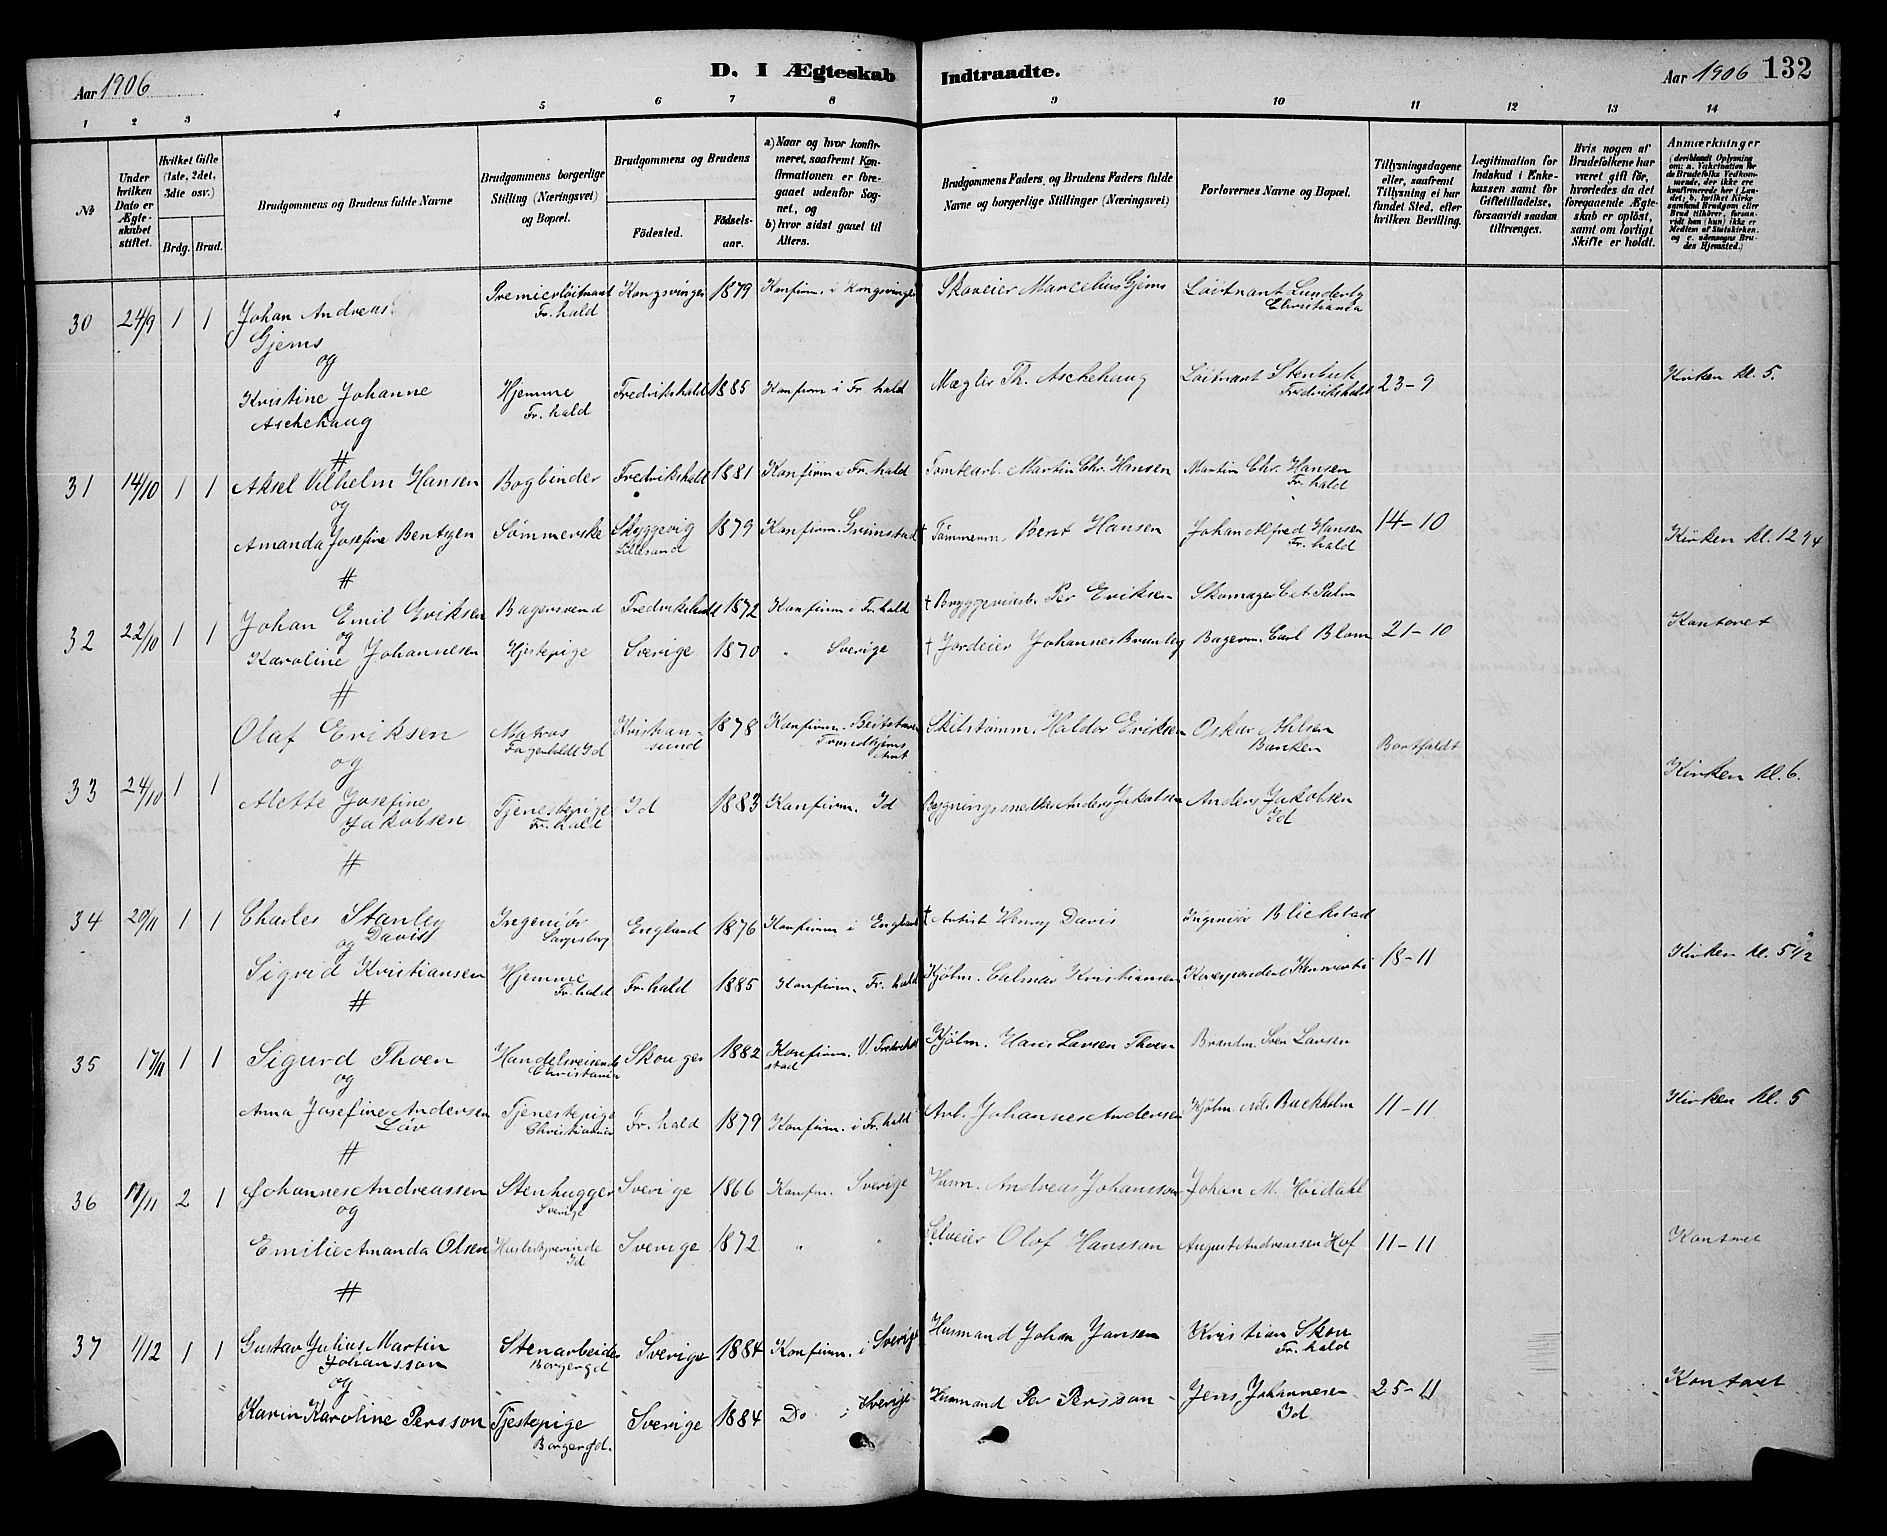 Aar 1906
D. I Ægteskab
Indtraadte.
Aar 1906 132
1 2 3 4 5 6 7 8 9 10 11 12 13 14
№
Under hvilken Dato er Ægteskabet stiftet.
Hvilket Gifte (1ste, 2det, 3die osv.)
Brdg. Brud.
Brudgommens og Brudens fulde Navne
Brudgommens borgerlige Stilling (Næringsvei) og Bopæl.
Brudgommens og Brudens
Fødested.
Fødselsaar.
a) Naar og hvor konfirmeret, saafremt Konfirmationen er foregaaet udenfor Sognet, og
b) hvor sidst gaaet til Alters.
Brudgommens Faders og Brudens Faders fulde Navne og borgerlige Stillinger (Næringsvei)
Forlovernes Navne og Bopæl.
Tillysningsdagene eller, saafremt Tillysning ei har fundet Sted, efter hvilken Bevilling.
Legitimation for Indskud i Enkekassen samt for Giftetilladelse, forsaavidt saadan tiltrænges.
Hvis nogen af Brudefolkene har været gift før, hvorledes da det foregaaende Ægteskab er opløst, samt om lovligt Skifte er holdt.
Anmærkninger
(deriblandt Oplysning om: a. Vakcination for de Brudefolks Vedkommende, der ikke ere konfirmerede her i Landet; b. hvilket Kirkesamfund Brudgom eller Brud tilhører, forsaavidt han (hun) ikke er Medlem af Statskirken, og c. udensogns Brudes Hjemsted.)
30 24/9 1 1 Johan Andreas Gjems Premierløitnant Fr.hald Kongsvinger 1879 Konfirm. i Kongsvinger Skoveier Marcelius Gjems Løitnant Lunderby Christiania
og
Kristine Johanne Aschehaug Hjemme Fr.hald Fredrikshald 1885 Konfirm i Fr.hald Mægler Th. Aschehaug Løitnant Stenbuk Fredrikshald 23-9 Kirken kl. 5.
#
31 14/10 1 1 Aksel Vilhelm Hansen Bogbinder Fredrikshald 1881 Konfirm i Fr.hald Tomtearb. Martin Chr. Hansen Martin Chr. Hansen Fr.hald
og
Amanda Josefine Bentzen Sømmerske Skyggevig Lillesand 1879 Konfirm. Grimstad † Tømmerm. Bent Hansen Johan Alfred Hansen Fr.hald 14-10 Kirken kl. 12 3/4
#
32 22/10 1 1 Johan Emil Eriksen Bagersvend Fredrikshald 1872 Konfirm i Fr.hald † Per Eriksen Skomager Palm
og
Karoline Johannesen Hjstepige Sverige 1870 " Sverige † Jordeier Johannes Bagerm. Carl Blom 21-10 Kontoret
#
33 24/10 1 1 Olaf Eriksen Matros Id Kristiansund 1878 Konfirm. Trondhjems Amt Skibstømm. Haldor Eriksen Oskar Ahlsen Banken Bortfaldt
og
Alette Josefine Jakobsen Tjenestepige Fr.hald Id 1883 Konfirm. Id Bygningssnedker Anders Jakobsen Anders Jakobsen Id Kirken kl. 6.
#
34 20/11 1 1 Charles Stanley Davis Ingeniør Sarpsborg England 1876 Konfirm i England † Artist Henry Davis Ingeniør Blickstad
og
Sigrid Kristiansen Hjemme Fr.hald Fr.hald 1885 Konfirm. Fr.hald Kjøbm. Kristiansen Korrespondent 18-11 Kirken kl. 5 1/2
#
35 17/11 1 1 Sigurd Thoen Handelsreisende Christiania Skouger 1882 Konfirm. V. Fredrikstad Kjøbm. Hans Larsen Thoen Brandm. Sven Larsen
og
Anna Josefine Andersen Løv Tjenestepige Christiania Fr.hald 1879 Konfirm. i Fr.hald Arb. Johannes Andersen Kjøbm. Buckholm 11-11 Kirken kl. 5
#
36 17/11 2 1 Johannes Andreassen Stenhugger Sverige Sverige 1866 Konfm. Sverige Husm. Andreas Johansson Johan M. Høidahl
og
Emilie Amanda Olsen Husbestyrerinde Id Sverige 1872 " " Selveier Olof Hansson August Andreassen Hof 11-11 Kontoret
#
37 1/12 1 1 Gustav Julius Martin Johansson Stenarbeider Borgergd Sverige 1884 Konfirm. i Sverige Husmand Johan Jansen Kristian Skou Fr.hald
og
Karin Karoline Persson Tjestepige Borgergd. Sverige 1884 Do. i Sverige Husmand Per Persson Jens Johannesen Id 25-11 Kontoret